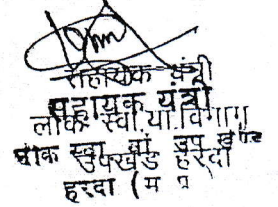 सहायक यंत्री
सहायक यंत्री
लोक स्वा. यां विभाग
लोक स्वा यां उप खण्ड
उपखंड हरदा
हरदा ( म प्र